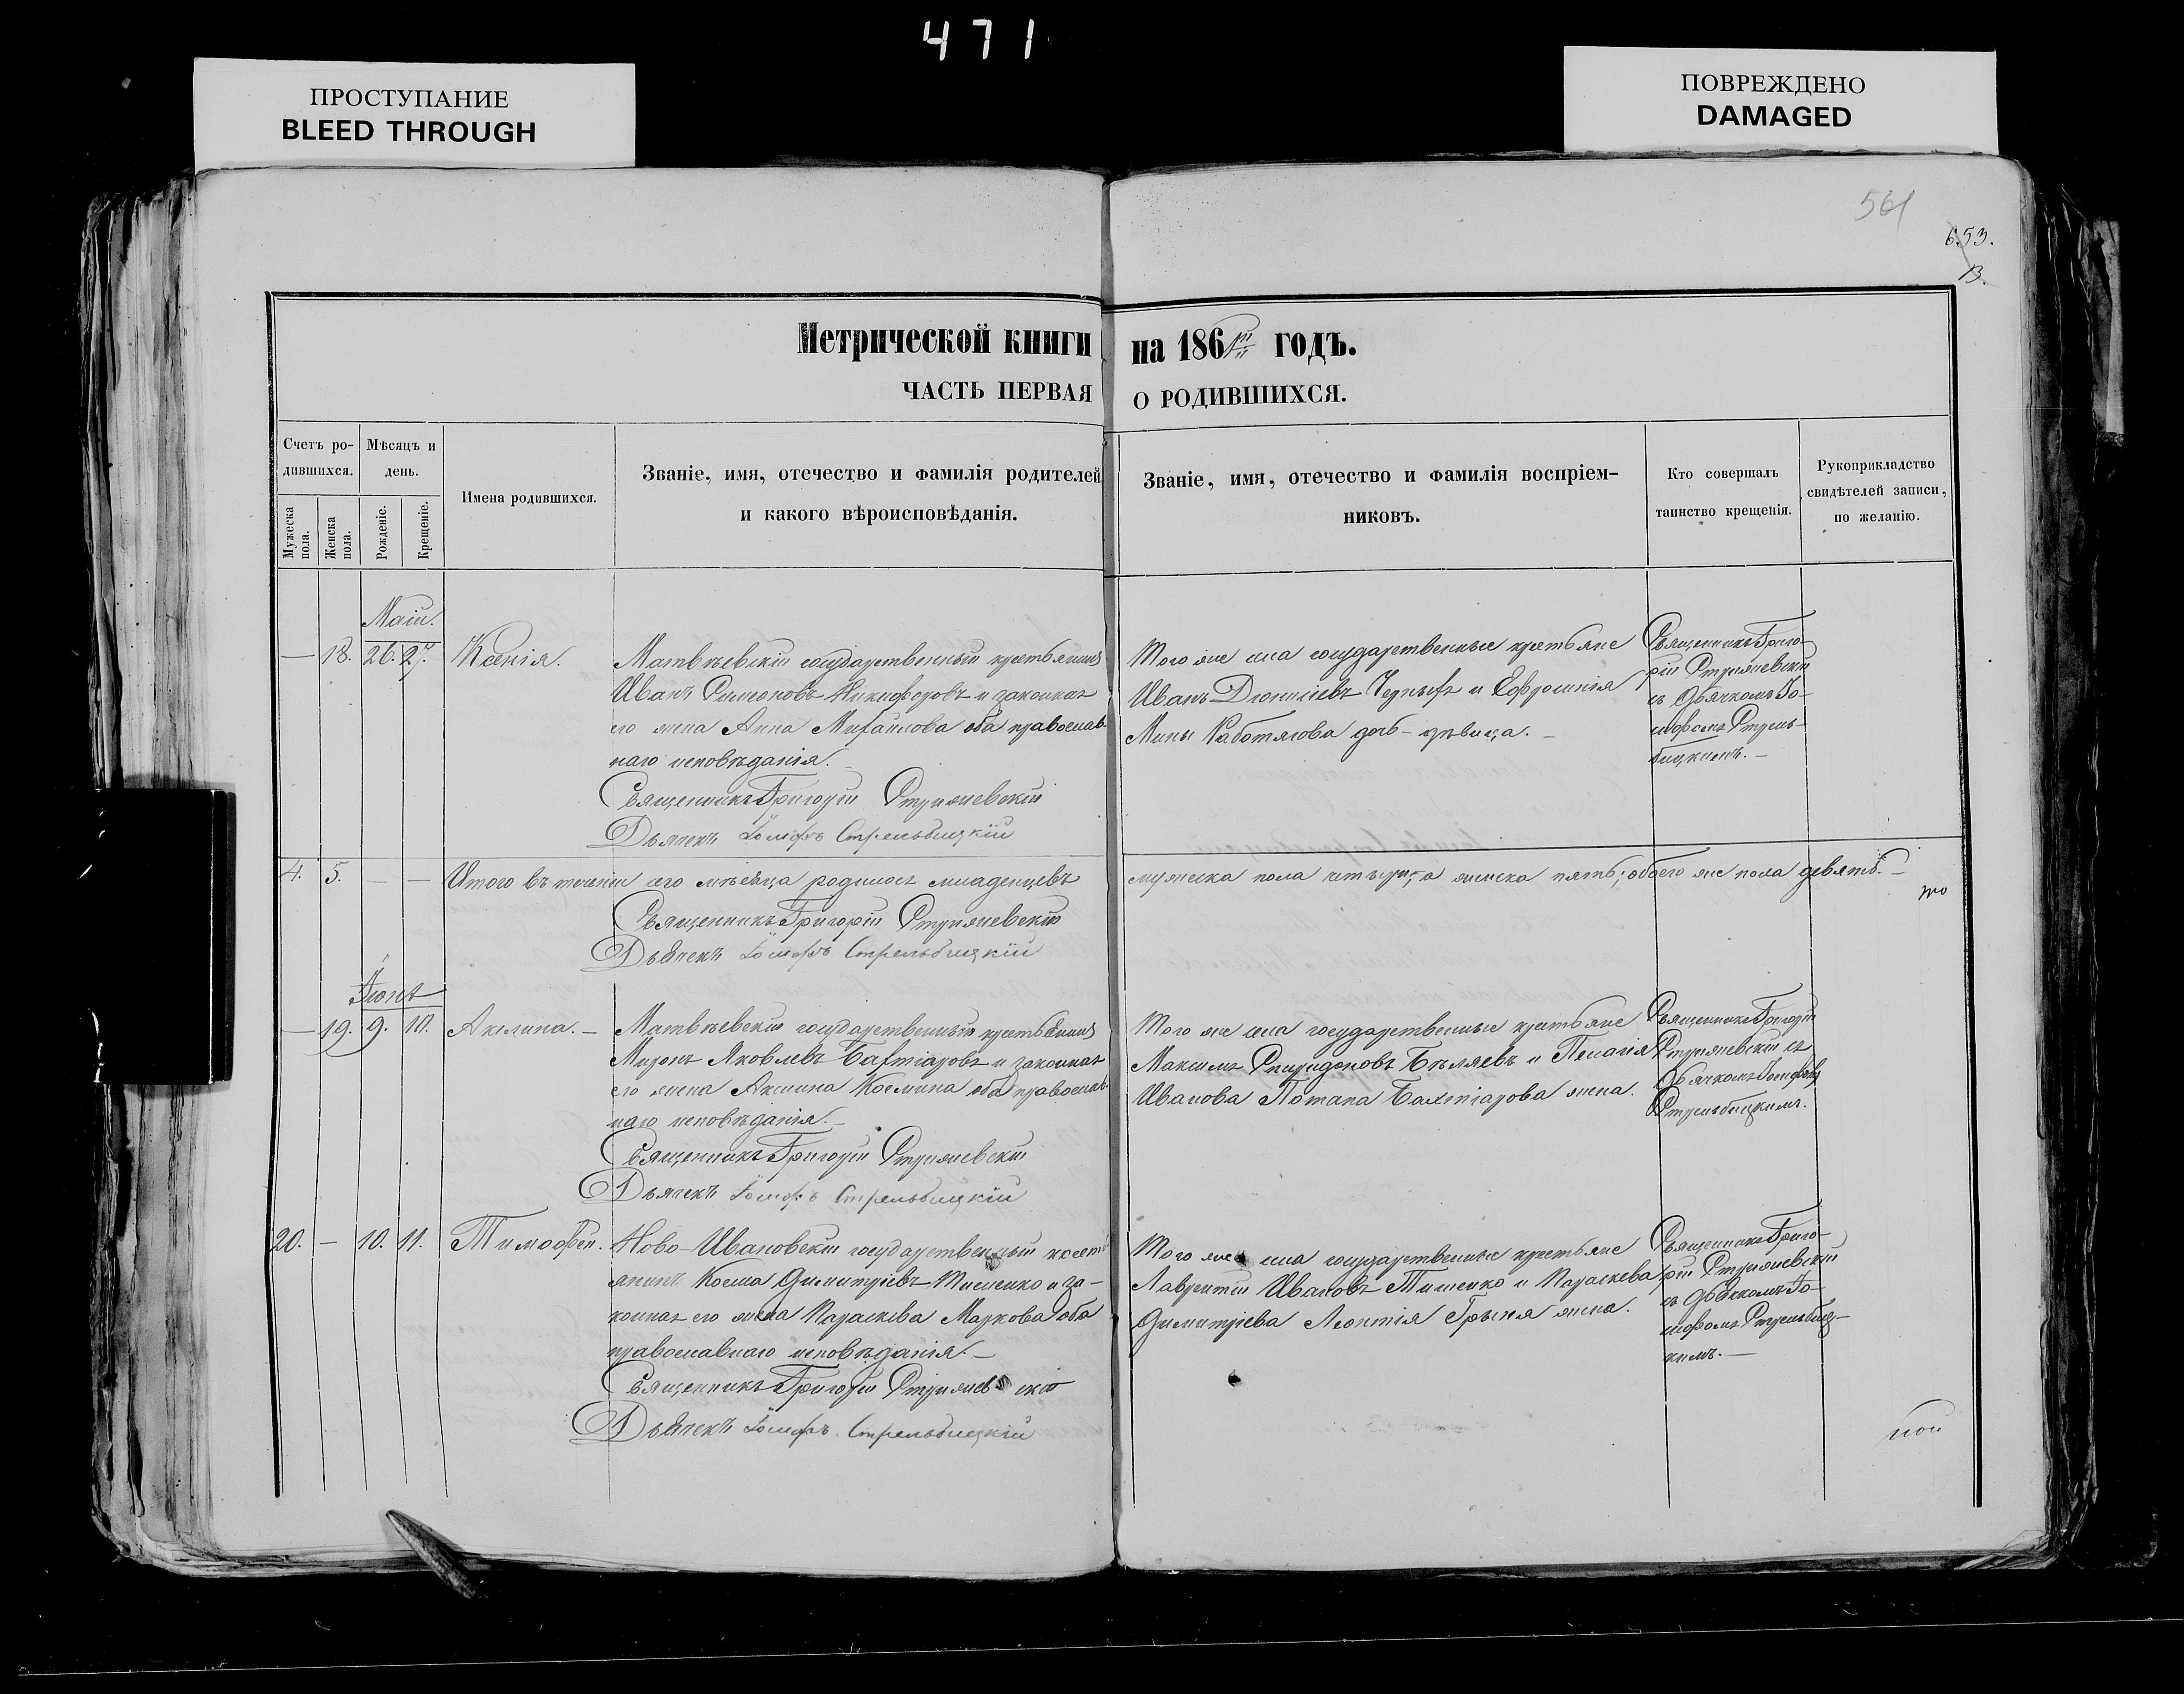 471
ПРОСТУПАНИЕ
BLEED THROUGH
ПОВРЕЖДЕНО
DAMAGED
561
653.
13.
Метрической книги на 186 годъ.
ЧАСТЬ ПЕРВАЯ О РОДИВШИХСЯ.
Счетъ ро-
дившихся.
Мужеска пола.
Женска пола.
Мѣсяцъ и
день.
Рожденіе.
Крещеніе.
Имена родившихся.
Званіе, имя, отечество и фамилія родителей
и какого вѣроисповѣданія.
Званіе, имя, отечество и фамилія воспріем-
никовъ.
Кто совершалъ
таинство крещенія.
Рукоприкладство
свидѣтелей записи,
по желанію.
Маій.
— 18. 26. 27. Ксенія.
Матвѣевскій государственный крестьянинъ
Иванъ Симеоновъ Никифоровъ и законная
его жена Анна Михайлова оба православ-
наго исповѣданія.
Священникъ Григорій Стрижевскій
Дьячекъ Іосифъ Стрельбицкій
Того же села государственные крестьяне
Иванъ Діонисіевъ Черныхъ и Ефросинія
Мины Работягова дочь - дѣвица. —
Священникъ Григо-
рій Стрижевскій
съ Дьячкомъ Іо-
сифомъ Стрель-
бицкимъ. —
4. 5. — — Итого въ теченіи сего мѣсяца родилось младенцевъ мужеска пола четыри, а женска пять; обоего же пола девять. —
Священникъ Григорій Стрижевскій
Дьячекъ Іосифъ Стрельбицкій
Іюнь
— 19. 9. 10. Акилина. —
Матвѣевскій государственный крестьянинъ
Миронъ Яковлевъ Бахтіаровъ и законная
его жена Акилина Космина оба православ-
наго исповѣданія. —
Священникъ Григорій Стрижевскій
Дьячекъ Іосифъ Стрельбицкій
Того же села государственные крестьяне
Максимъ Спиридоновъ Бѣляевъ и Пелагія
Иванова Потапа Бахтіарова жена.
Священникъ Григорій
Стрижевскій съ
Дьячкомъ Іосифомъ
Стрельбицкимъ.
20. — 10. 11. Тимоѳей.
Ново-Ивановскій государственный крестья-
янинъ Косма Димитріевъ Тищенко и за-
конная его жена Параскева Маркова оба
православнаго исповѣданія. —
Священникъ Григорій Стрижевскій
Дьячекъ Іосифъ Стрельбицкій
Того же села государственные крестьяне
Лаврентій Ивановъ Тищенко и Параскева
Димитріева Леонтія жена.
Священникъ Григо-
рій Стрижевскій
съ Дьячкомъ Іо-
сифомъ Стрельбиц-
кимъ. —